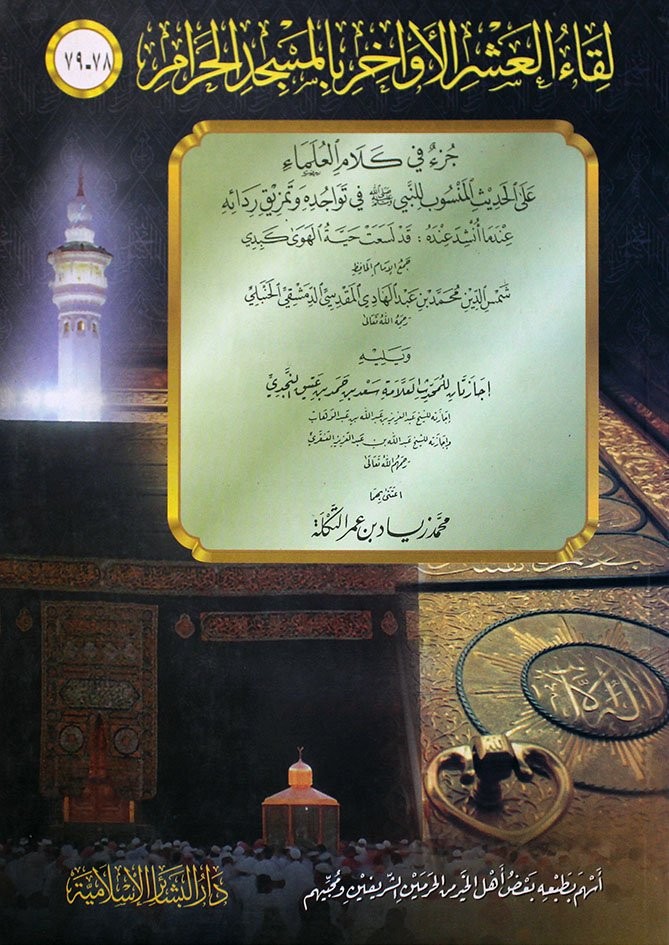 لِقَاءُ العَشْرِ الأَوَاخِرِ بِالمَسْجِدِ الحَرَامِ
٧٨-٧٩
جُزْءٌ فِي كَلَامِ العُلَمَاءِ
عَلَى الحَدِيثِ المَنْسُوبِ لِلنَّبِيِّ ﷺ فِي تَوَاجُدِهِ وَتَمْزِيقِ رِدَائِهِ
عِنْدَمَا أُنْشِدَ عِنْدَهُ : قَدْ لَسَعَتْ حَيَّةُ الهَوَى كَبِدِي
جمع الإمام الحافظ
شَمْسِ الدِّينِ مُحَمَّدِ بْنِ عَبْدِ الهَادِي المَقْدِسِيِّ الدِّمَشْقِيِّ الحَنْبَلِيِّ
رحمه الله تعالى
وَيَلِيهِ
إجازتان للمحدث العلامة سعد بن حمد بن عتيق النجدي
إجازته للشيخ عبد العزيز بن عبد الله بن عبد الوهاب
وإجازته للشيخ عبد الله بن عبد العزيز العنقري
رحمهم الله تعالى
اعتنى بهما
محمد زياد بن عمر التكلة
الله جل جلاله
أَسْهَمَ بِطَبْعِهِ بَعْضُ أَهْلِ الخَيْرِ مِنَ الحَرَمَيْنِ الشَّرِيفَيْنِ وَمُحِبِّيهِم
دَارُ البَشَائِرِ الإِسْلَامِيَّةِ